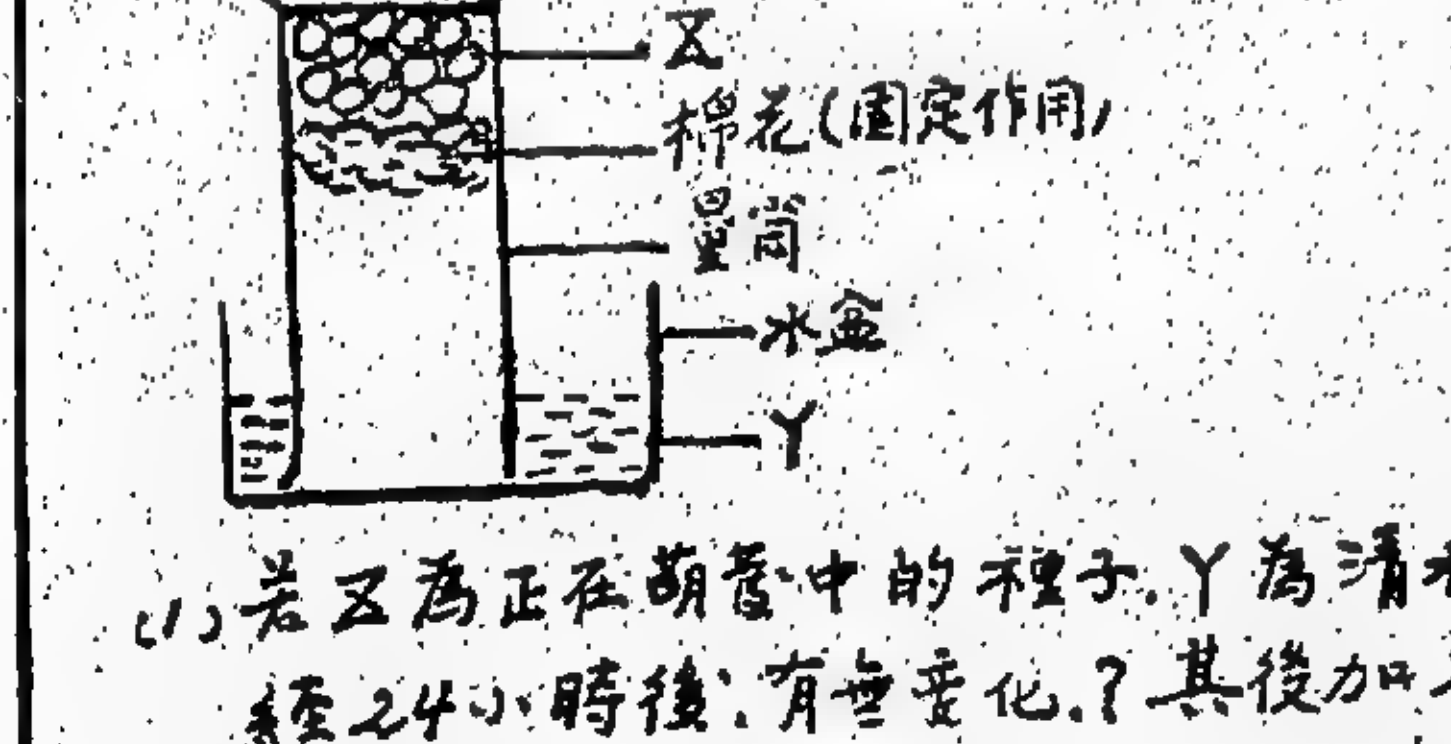 Z
棉花(固定作用)
量筒
水盆
Y
(1)若Z為正在萌發中的種子.Y為清
經24小時後:有無變化.?其後加